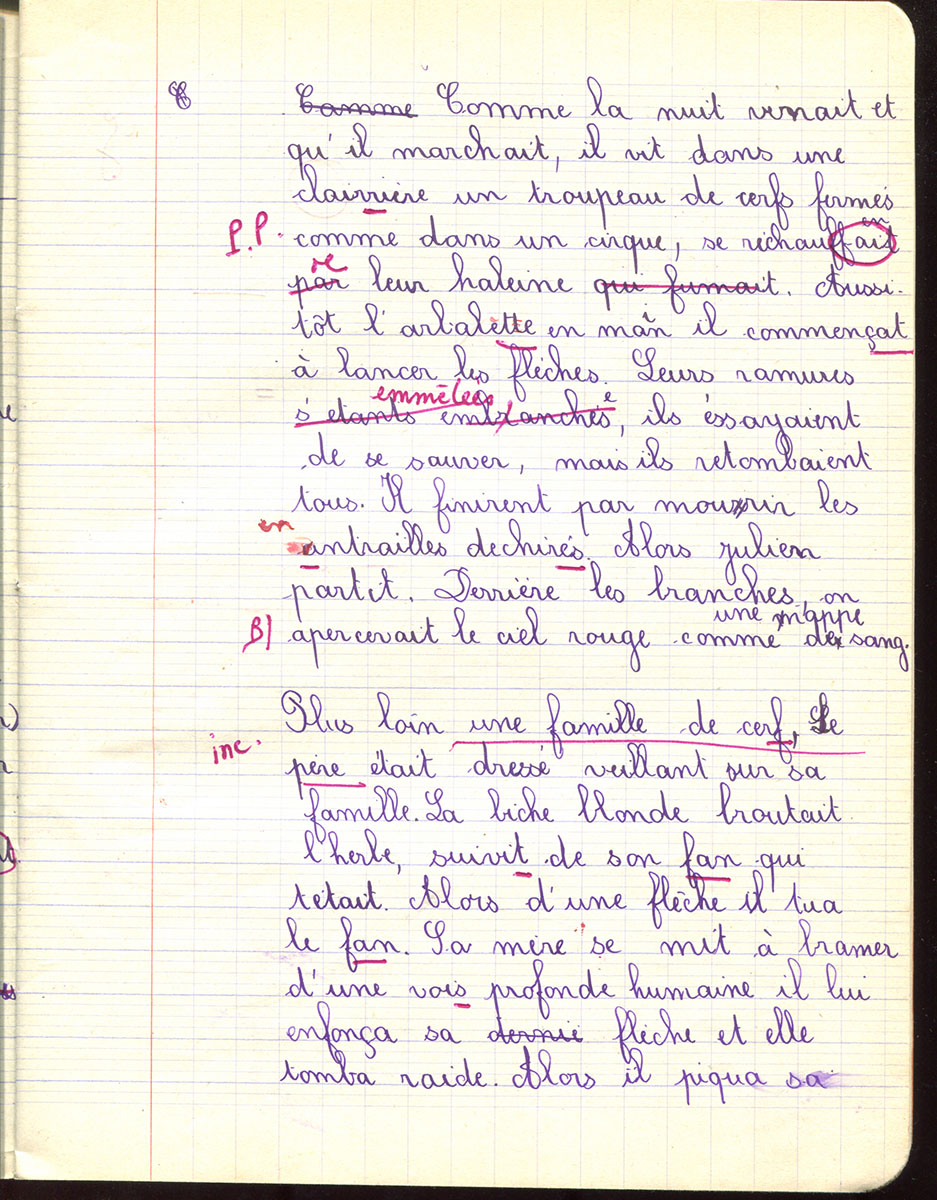 C Camme Comme la nuit venait et
qu'il marchait, il vit dans une
clairrière un troupeau de cerfs fermés
P.P. comme dans un cirque, se réchauffait en
par re leur haleine qui fumait. Aussi-
tôt l'arbalette en main il commençat
à lancer les flèches. Leurs ramures
emmêlées
s'étants embranchés, ils éssayaient
de se sauver, mais ils retombaient
tous. Il finirent par mourrir les
en
antrailles dechirés. Alors julien
partit. Derrière les branches, on
une nappe
B) apercevait le ciel rouge comme de sang.
Plus loin une famille de cerf, Le
inc. père était dressé veillant sur sa
famille. La biche blonde broutait
l'herbe, suivit de son fan qui
tétait. Alors d'une flèche il tua
le fan. Sa mère se mit à bramer
d'une vois profonde humaine il lui
enfonça sa dernié flèche et elle
tomba raide. Alors il piqua sa